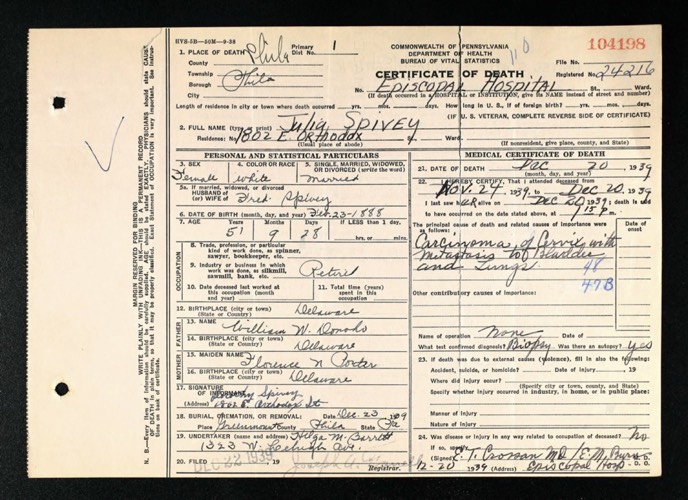 HVS-5B—50M—9-38
1. PLACE OF DEATH Phila Primary 1
County
Township
Borough Phila
City
COMMONWEALTH OF PENNSYLVANIA
DEPARTMENT OF HEALTH
BUREAU OF VITAL STATISTICS
CERTIFICATE OF DEATH
110
File No. 104198
Registered No. 24216
No. EPISCOPAL HOSPITAL St., Ward.
(If death occurred in a HOSPITAL or INSTITUTION, give its NAME instead of street and number)
Length of residence in city or town where death occurred yrs. mos. days. How long in U. S., if of foreign birth? yrs. mos. days.
IF U. S. VETERAN, COMPLETE REVERSE SIDE OF CERTIFICATE
2. FULL NAME (type or print) Julia SPIVEY
Residence: No. 1802 E. Orthodox St., Ward.
(Usual place of abode) (If nonresident, give place, county, and State)
PERSONAL AND STATISTICAL PARTICULARS
3. SEX Female
4. COLOR OR RACE white
5. SINGLE, MARRIED, WIDOWED, OR DIVORCED (write the word) married
5a. If married, widowed, or divorced
HUSBAND of
(or) WIFE of Fred Spivey
6. DATE OF BIRTH (month, day, and year) Feb-23-1888
7. AGE Years 51 Months 9 Days 28 If LESS than 1 day, hrs. or min.
OCCUPATION
8. Trade, profession, or particular
kind of work done, as spinner,
sawyer, bookkeeper, etc.
9. Industry or business in which
work was done, as silkmill,
sawmill, bank, etc. Retired
10. Date deceased last worked at
this occupation (month
and year)
11. Total time (years)
spent in this
occupation
12. BIRTHPLACE (city or town) Delaware
(State or County)
FATHER
13. NAME William W.
14. BIRTHPLACE (city or town) Delaware
(State or County)
MOTHER
15. MAIDEN NAME Florence N Porter
16. BIRTHPLACE (city or town) Delaware
(State or County)
17. SIGNATURE of Spivey
(Address) 1802 E. Orthodox St
18. BURIAL, CREMATION, OR REMOVAL: Date Dec. 23 1939
Place Greenmount County Phila State Pa
19. UNDERTAKER (name and address) Helga M. Barrett
1323 W. Lehigh Ave.
20. FILED DEC 22 1939 Registrar.
MEDICAL CERTIFICATE OF DEATH
21. DATE OF DEATH (month, day, and year) Dec 20, 1939
22. I HEREBY CERTIFY, That I attended deceased from
Nov. 24, 1939, to Dec 20, 1939
I last saw her alive on Dec 20 1939; death is said
to have occurred on the date stated above, at m.
The principal cause of death and related causes of importance were as follows:
Date of onset
Carcinoma of Cervix with
metastasis to Bladder
and Lungs 48
47B
Other contributory causes of importance:
Name of operation None Date of
What test confirmed diagnosis? Biopsy Was there an autopsy? yes
23. If death was due to external causes (violence), fill in also the following:
Accident, suicide, or homicide? Date of injury , 19
Where did injury occur?
(Specify city or town, county, and State)
Specify whether injury occurred in industry, in home, or in public place:
Manner of injury
Nature of injury
24. Was disease or injury in any way related to occupation of deceased? No
If so, specify
(Signed) E. T. Crossan MD
12-20 1939 (Address) Episcopal Hosp
MARGIN RESERVED FOR BINDING
WRITE PLAINLY WITH UNFADING INK—THIS IS A PERMANENT RECORD
N. B.—Every item of information should be carefully supplied. AGE should be stated EXACTLY. PHYSICIANS should state CAUSE OF DEATH in plain terms, so that it may be properly classified. Exact Statement of OCCUPATION is very important. See instructions on back of certificate.